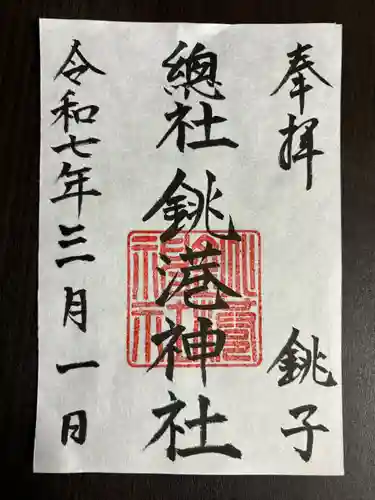 奉拝
銚子
總社銚港神社
令和七年三月一日